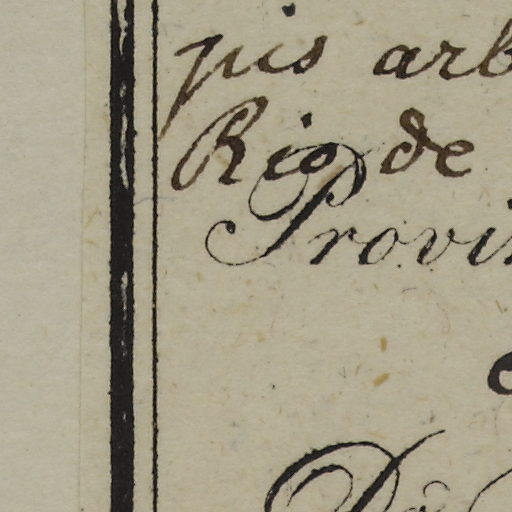 pis arb
Rio de
Provin